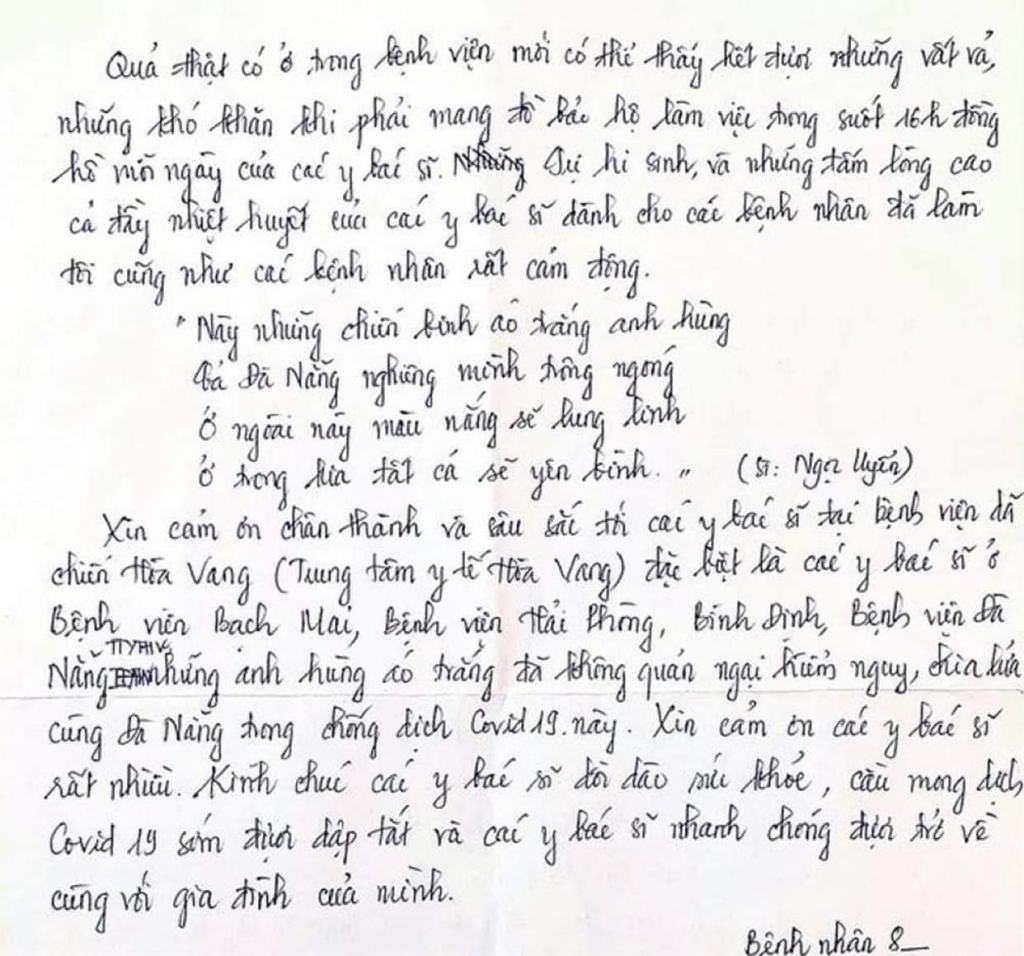 Quả thật có ở trong bệnh viện mới có thể thấy hết được những vất vả,
những khó khăn khi phải mang đồ bảo hộ làm việc trong suốt 16h đồng
hồ mỗi ngày của các y bác sĩ. Những Sự hi sinh, và những tấm lòng cao
cả đầy nhiệt huyết của các y bác sĩ dành cho các bệnh nhân đã làm
tôi cũng như các bệnh nhân rất cảm động.
"Này những chiến binh áo trắng anh hùng
Cả Đà Nẵng nghiêng mình trông ngóng
Ở ngoài này màu nắng sẽ lung linh
Ở trong kia tất cả sẽ yên bình." (St: Ngọc Uyển)
Xin cảm ơn chân thành và sâu sắc tới các y bác sĩ tại bệnh viện dã
chiến Hòa Vang (Trung tâm y tế Hòa Vang) đặc biệt là các y bác sĩ ở
Bệnh viện Bạch Mai, Bệnh viện Hải Phòng, Bình Định, Bệnh viện Đà
Nẵng những anh hùng áo trắng đã không quản ngại hiểm nguy, chia lửa
cùng Đà Nẵng trong chống dịch Covid 19 này. Xin cảm ơn các y bác sĩ
rất nhiều. Kính chúc các y bác sĩ dồi dào sức khỏe, cầu mong dịch
Covid 19 sớm được dập tắt và các y bác sĩ nhanh chóng được trở về
cùng với gia đình của mình.
Bệnh nhân 8